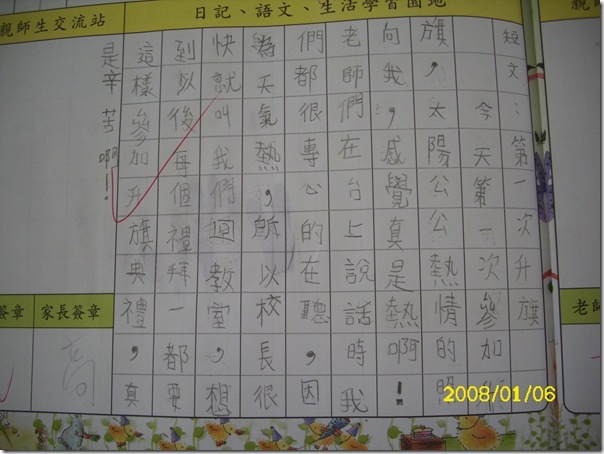 日記、語文、生活學習園地
親師生交流站
短文：第一次升旗
今天第一次參加升
旗，太陽公公熱情的照
向我，感覺真是熱啊！
老師們在台上說話時我
們都很專心的在聽，因
為天氣熱，所以校長很
快就叫我們迴教室，想
到以後每個禮拜一都要
這樣參加升旗典禮，真
是辛苦啊！
老師
家長簽章
簽章
2008/01/06